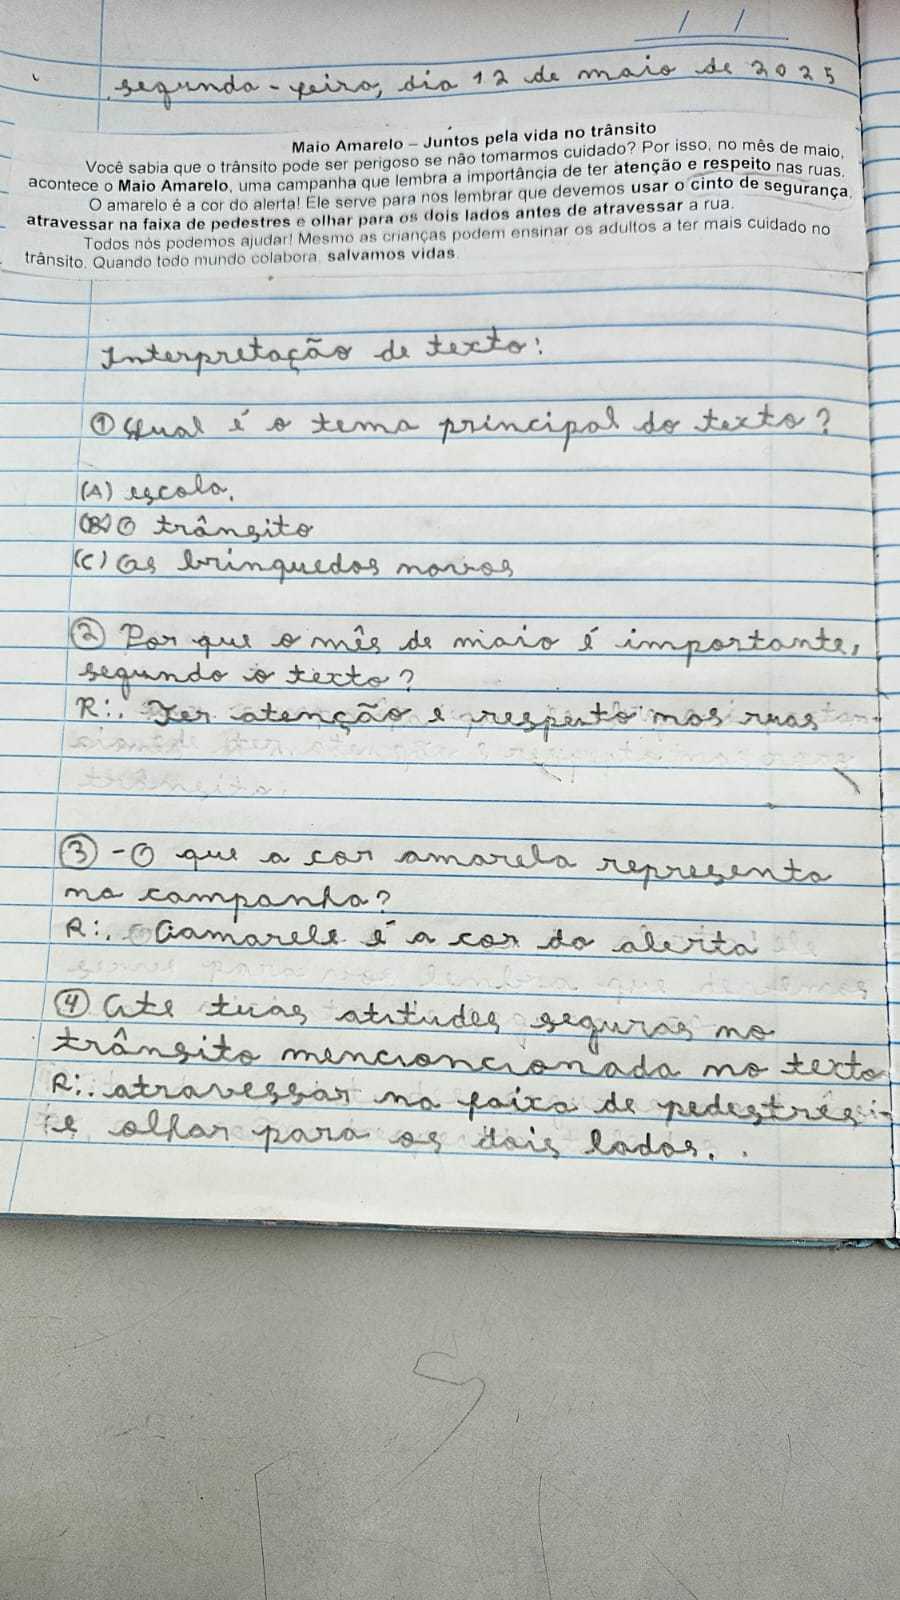 / /
segunda-feira, dia 12 de maio de 2025
Maio Amarelo – Juntos pela vida no trânsito
Você sabia que o trânsito pode ser perigoso se não tomarmos cuidado? Por isso, no mês de maio,
acontece o Maio Amarelo, uma campanha que lembra a importância de ter atenção e respeito nas ruas.
O amarelo é a cor do alerta! Ele serve para nos lembrar que devemos usar o cinto de segurança,
atravessar na faixa de pedestres e olhar para os dois lados antes de atravessar a rua.
Todos nós podemos ajudar! Mesmo as crianças podem ensinar os adultos a ter mais cuidado no
trânsito. Quando todo mundo colabora, salvamos vidas.
Interpretação de texto:
① Qual é o tema principal do texto?
(A) escola.
(B) O trânsito
(C) Os brinquedos novos
② Por que o mês de maio é importante,
segundo o texto?
R:. Ter atenção e respeito nas ruas
③ - O que a cor amarela representa
na campanha?
R:. O amarele é a cor do alerta
④ Cite tuas atitudes seguras no
trânsito mencioncionada no texto
R:. atravessar na faixa de pedestres
e olhar para os dois lados.